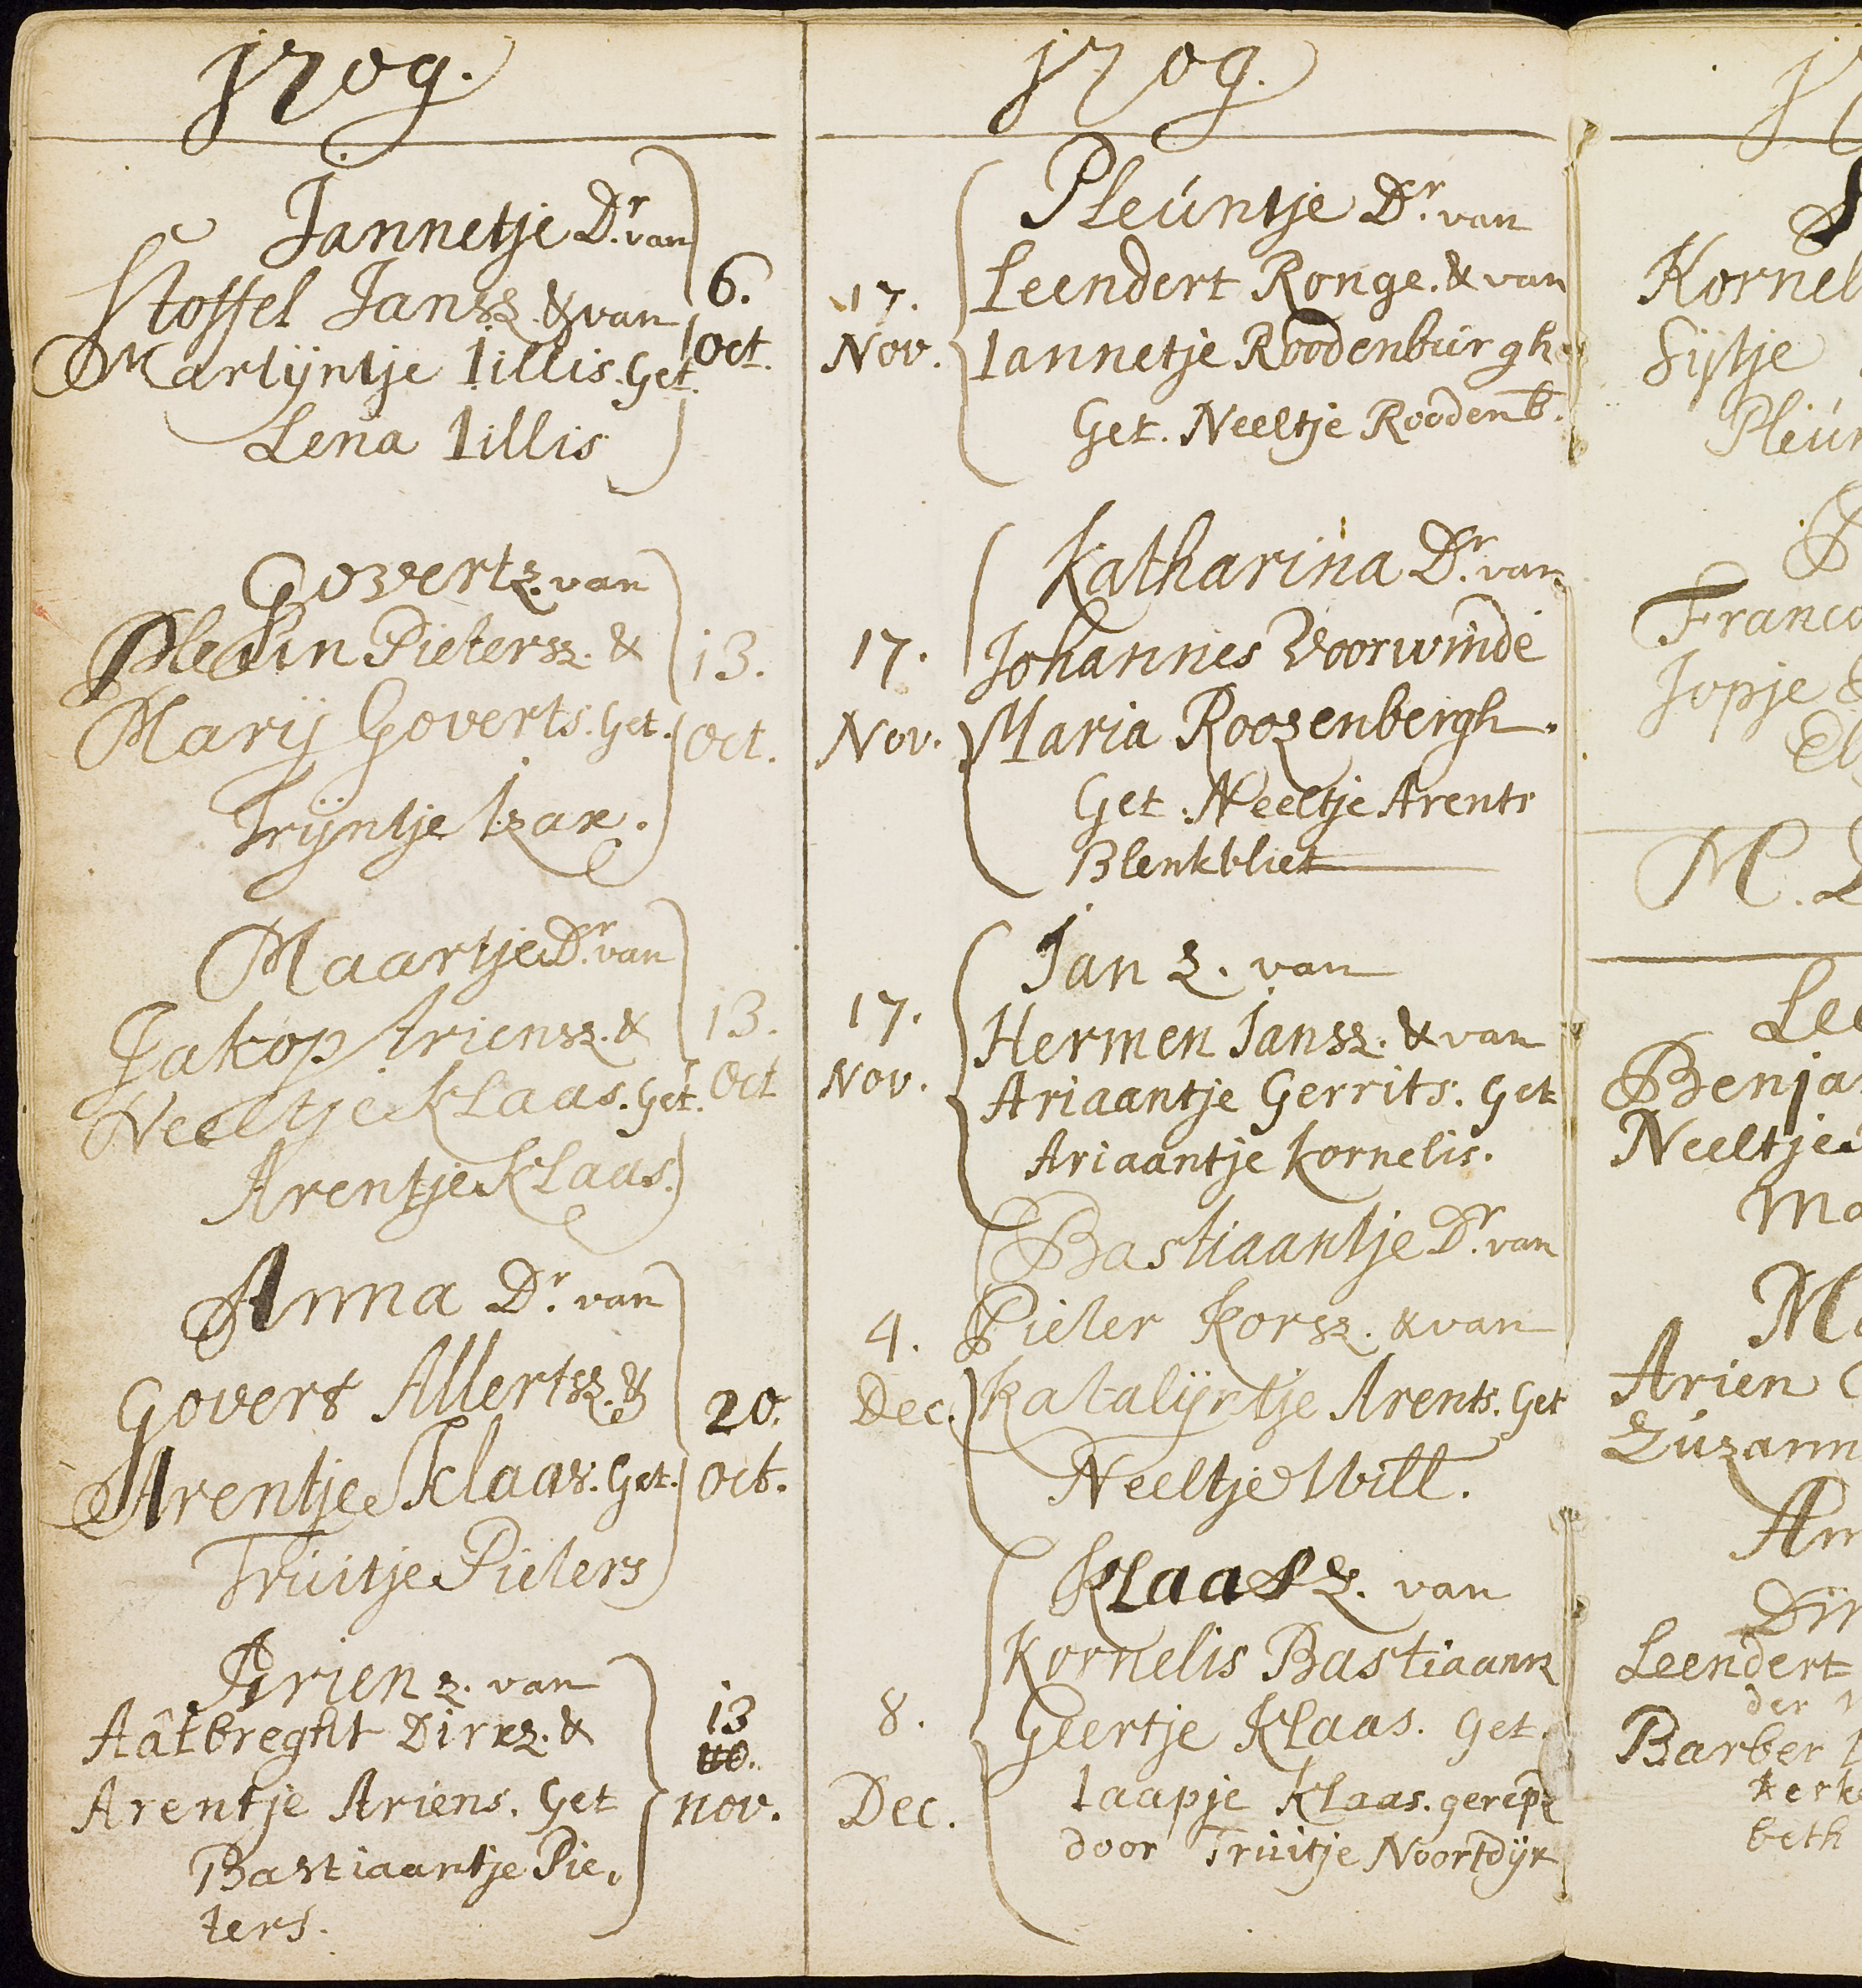 1709.
Jannetje Dr. van
Stoffel Jansz. & van
Martijntje Iillis. Get.
Lena Iillis
6.
Oct.
Govert z. van
Pleun Pietersz. &
Marij Goverts. Get.
Trijntje Izax.
13.
Oct.
Maartje Dr. van
Jakop Ariensz. &
Neeltje Klaas. Get.
Arentje Klaas.
13.
Oct
Anna Dr. van
Govert Allertsz. &
Arentje Klaas. Get.
Truitje Pieters
20.
Oct.
Arien z. van
Aâtbreght Dirxz. &
Arentje Ariens. Get
Bastiaantje Pie-
ters.
13
nov.
1709.
17.
Nov.
Pleúntje Dr. van
Leendert Ronge. & van
Iannetje Roodenbúrgh
Get. Neeltje Roodenb.
17.
Nov.
Katharina Dr. van
Johannes Voorwinde
Maria Roozenbergh.
Get. Neeltje Arents
Blenkvliet
17.
Nov.
Jan z. van
Hermen Jansz. & van
Ariaantje Gerrits. Get
Ariaantje Kornelis.
4.
Dec.
Bastiaantje Dr. van
Pieter Korsz. & van
Katalijntje Arents. Get
Neeltje Will.
8.
Dec.
Klaas z. van
Kornelis Bastiaansz
Geertje Klaas. Get.
Iaapje Klaas. gerep.
door Truitje Noortdijk
Kornel
Fijtje
Pleún
Franco
Jopje &
M.
Lee
Benja
Neeltje
Ma
Ma
Arien
Zúzann
An
Dir
Leendert
der
Barber
kerk
beth